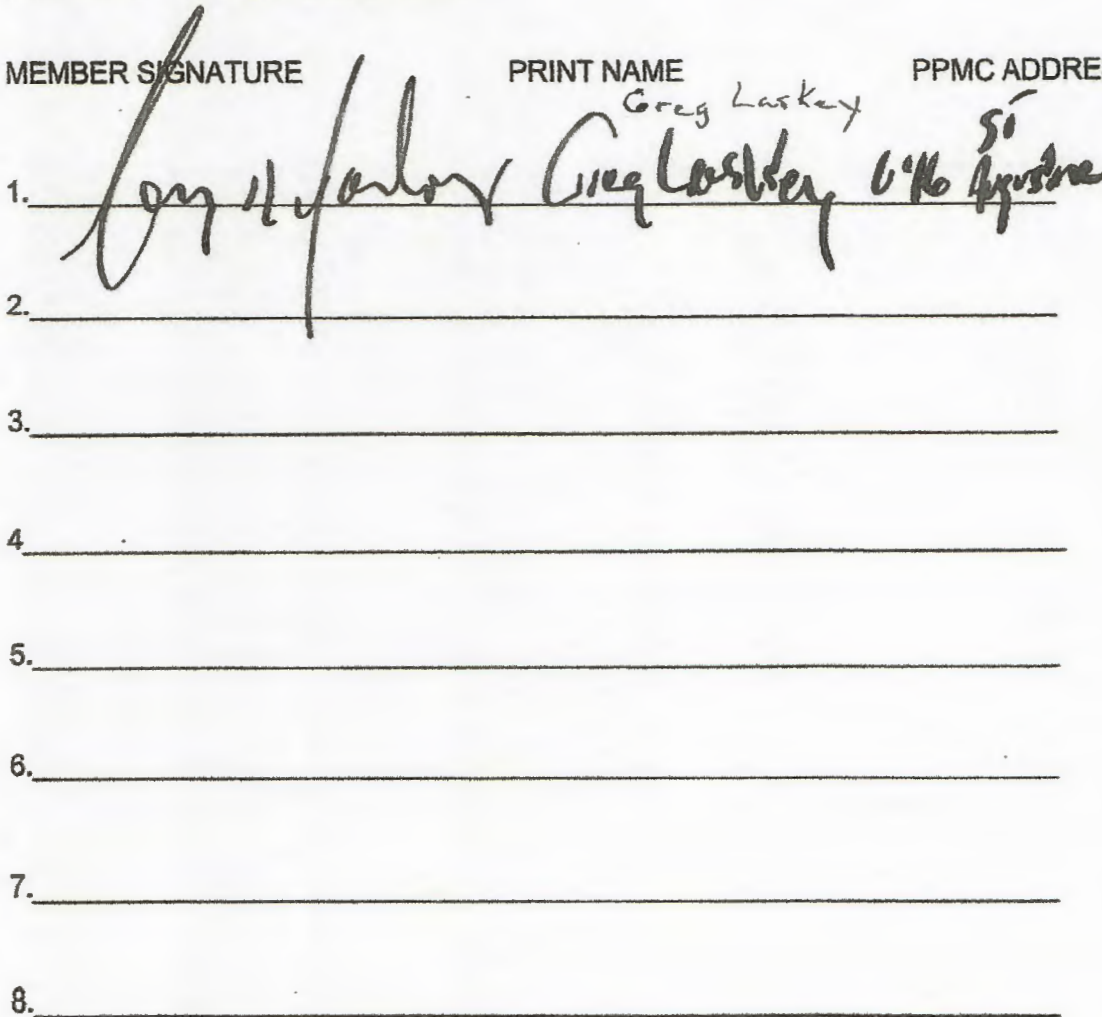 MEMBER SIGNATURE PRINT NAME PPMC ADDRE
Greg Laskey
1. Greg Laskey St Augustine
2.
3.
4
5.
6.
7.
8.